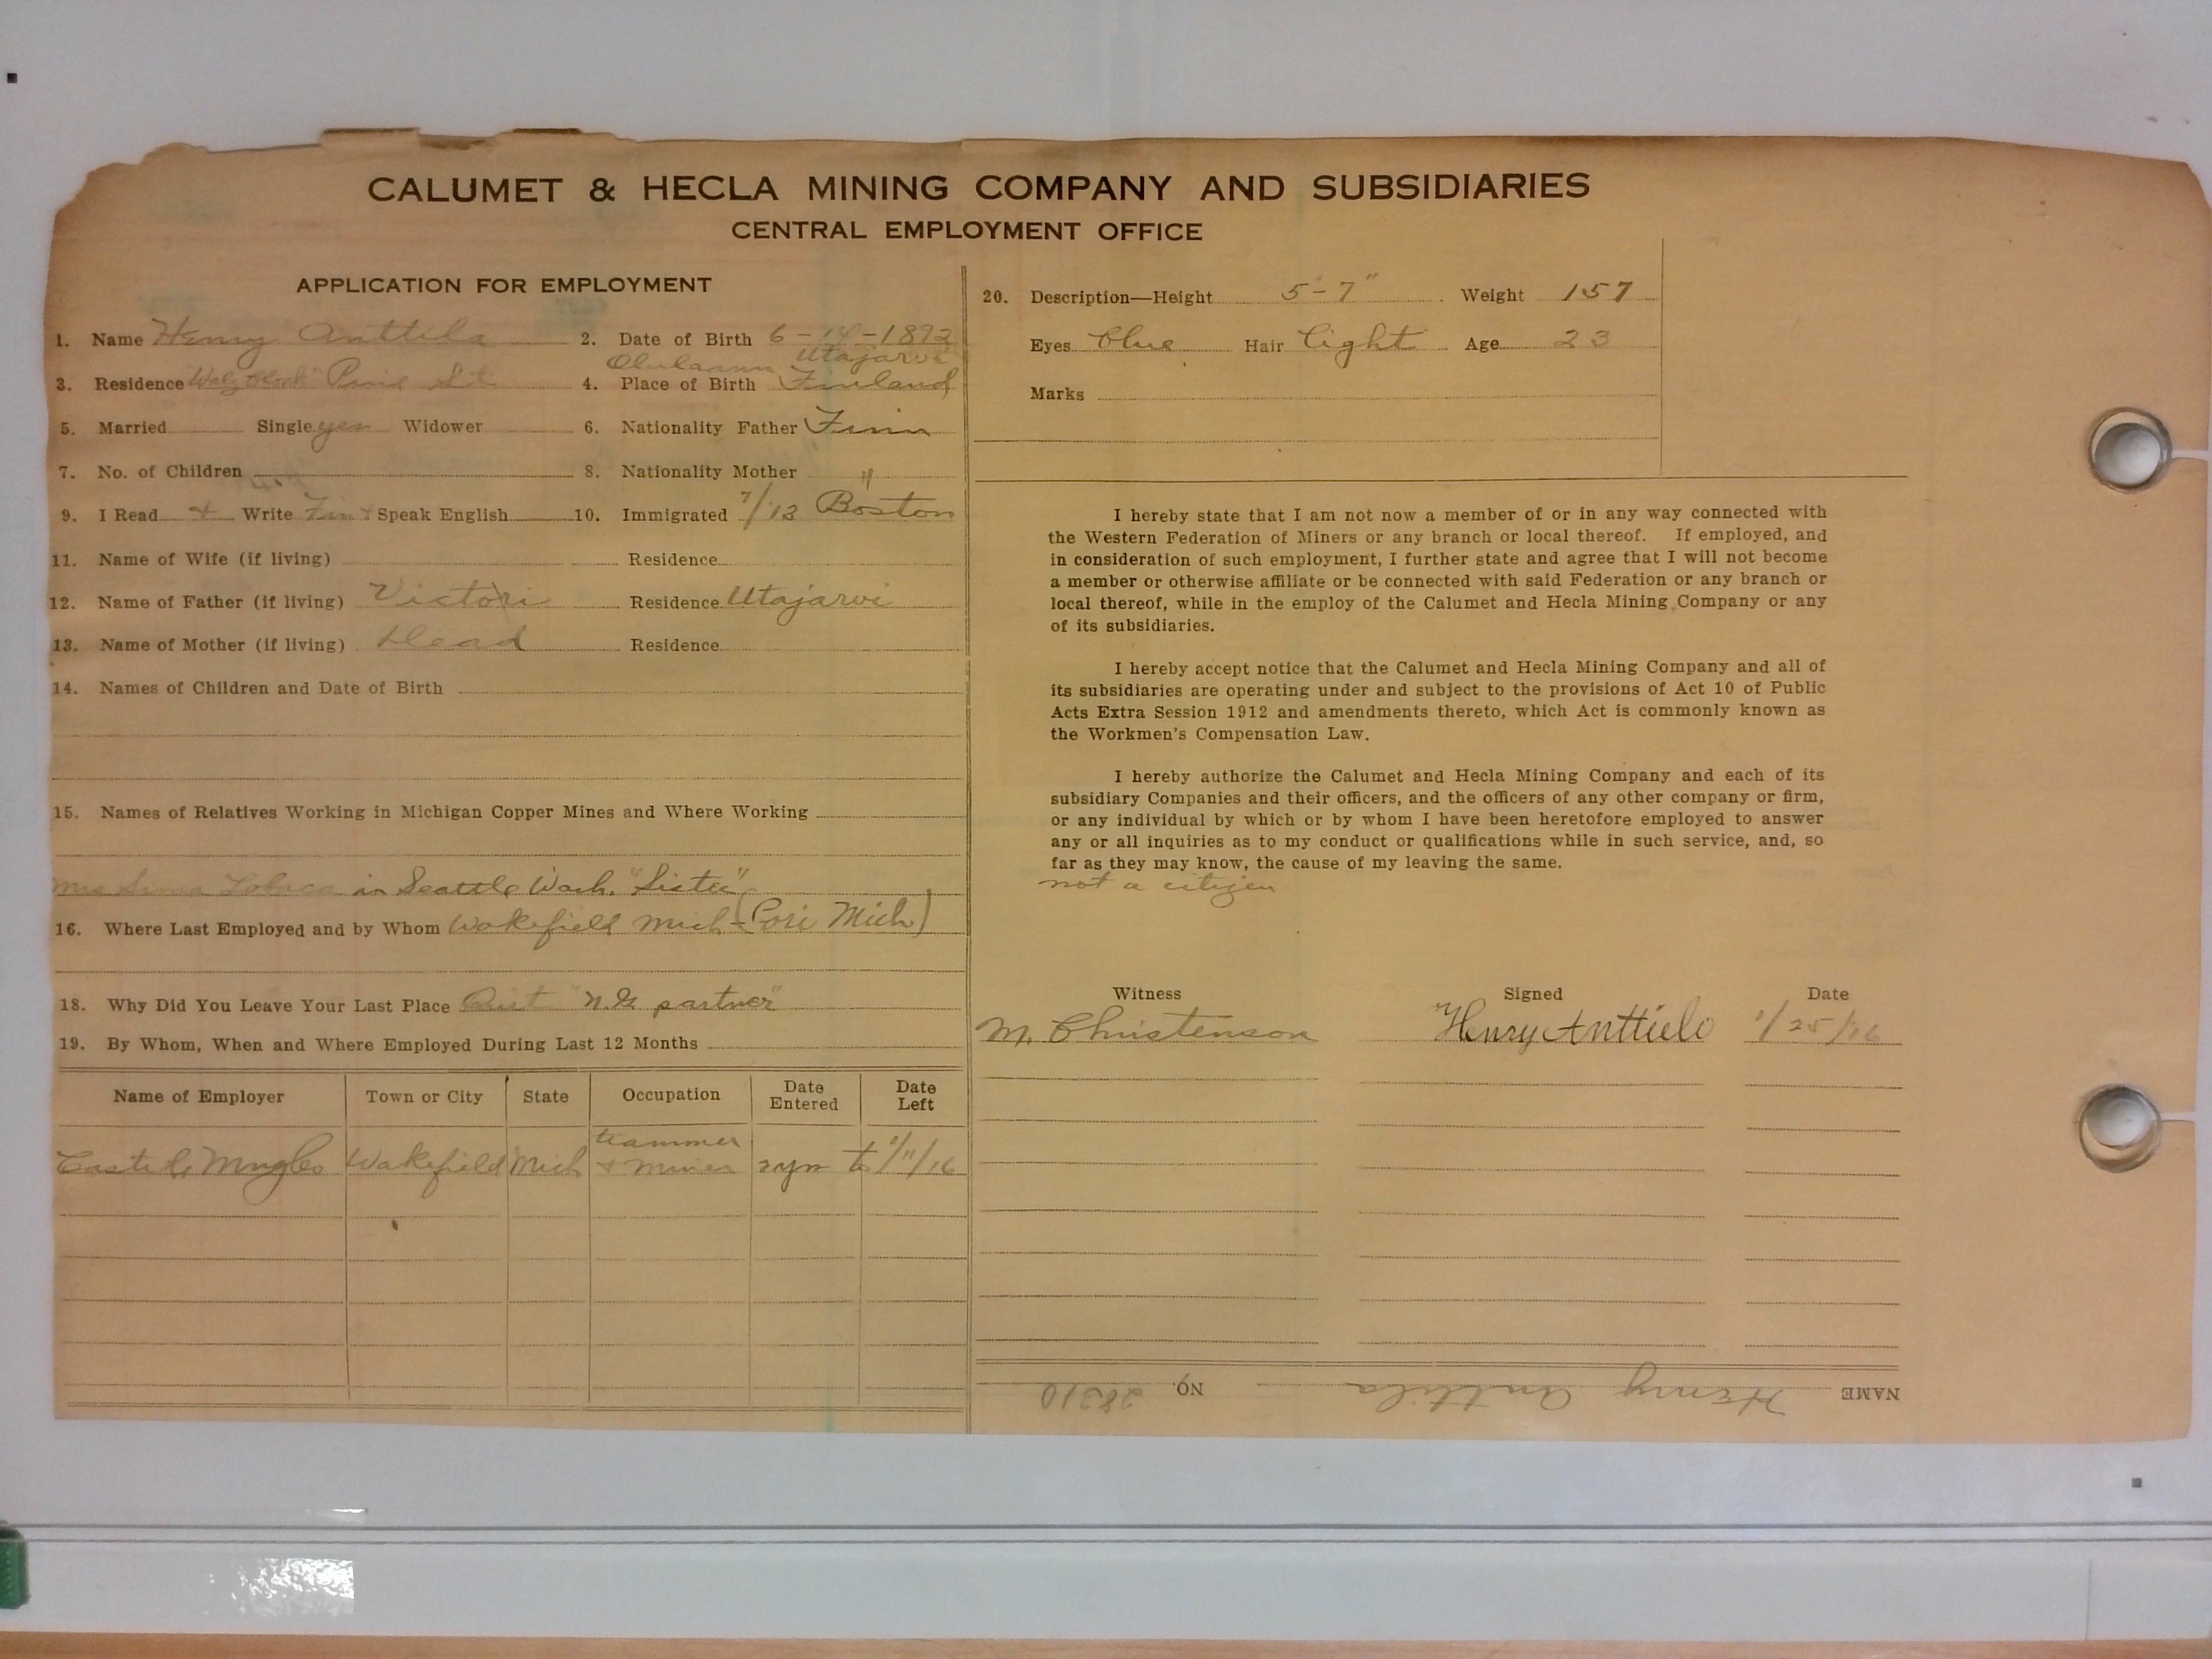 CALUMET & HECLA MINING COMPANY AND SUBSIDIARIES
CENTRAL EMPLOYMENT OFFICE
APPLICATION FOR EMPLOYMENT
1. Name Henry Anttila 2. Date of Birth 6-14-1892
Utajarvi
3. Residence Pine St 4. Place of Birth Finland
5. Married Single yes Widower 6. Nationality Father Finn
7. No. of Children 8. Nationality Mother "
9. I Read + Write Finn Speak English 10. Immigrated 7/13 Boston
11. Name of Wife (if living) Residence
12. Name of Father (if living) Victori Residence Utajarvi
13. Name of Mother (if living) Dead Residence
14. Names of Children and Date of Birth
15. Names of Relatives Working in Michigan Copper Mines and Where Working
Mrs in Seattle Wash. "Sister"
16. Where Last Employed and by Whom Wakefield Mich (Pori Mich)
18. Why Did You Leave Your Last Place Quit "N.G. partner"
19. By Whom, When and Where Employed During Last 12 Months
Name of Employer Town or City State Occupation Date Entered Date Left
Wakefield Mich trammer + miner 2 yrs to 1/11/16
20. Description—Height 5-7" Weight 157
Eyes Blue Hair Light Age 23
Marks
I hereby state that I am not now a member of or in any way connected with
the Western Federation of Miners or any branch or local thereof. If employed, and
in consideration of such employment, I further state and agree that I will not become
a member or otherwise affiliate or be connected with said Federation or any branch or
local thereof, while in the employ of the Calumet and Hecla Mining Company or any
of its subsidiaries.
I hereby accept notice that the Calumet and Hecla Mining Company and all of
its subsidiaries are operating under and subject to the provisions of Act 10 of Public
Acts Extra Session 1912 and amendments thereto, which Act is commonly known as
the Workmen's Compensation Law.
I hereby authorize the Calumet and Hecla Mining Company and each of its
subsidiary Companies and their officers, and the officers of any other company or firm,
or any individual by which or by whom I have been heretofore employed to answer
any or all inquiries as to my conduct or qualifications while in such service, and, so
far as they may know, the cause of my leaving the same.
not a citizen
Witness Signed Date
M. Christenson Henry Anttielo 1/25/16
NAME Henry Anttila No. 28310